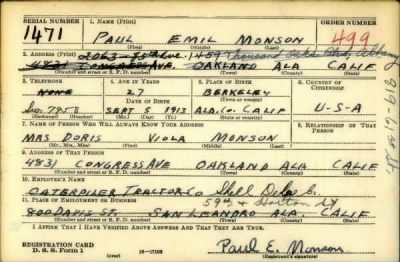 SERIAL NUMBER 1. NAME (Print) ORDER NUMBER
1471 PAUL EMIL MONSON 499
(First) (Middle) (Last)
2. ADDRESS (Print)
1459 Thousand Oaks
4831 CONGRESS AVE. OAKLAND ALA CALIF
(Number and street or R. F. D. number) (Town) (County) (State)
3. TELEPHONE 4. AGE IN YEARS 5. PLACE OF BIRTH 6. COUNTRY OF CITIZENSHIP
NONE 27 BERKELEY
DATE OF BIRTH (Town or county)
7858 SEPT 5 1913 ALA. CO. CALIF U-S-A
(Exchange) (Number) (Mo.) (Day) (Yr.) (State or country)
7. NAME OF PERSON WHO WILL ALWAYS KNOW YOUR ADDRESS 8. RELATIONSHIP OF THAT PERSON
MRS DORIS VIOLA MONSON
(Mr., Mrs., Miss) (First) (Middle) (Last)
9. ADDRESS OF THAT PERSON
4831 CONGRESS AVE OAKLAND ALA CALIF
(Number and street or R. F. D. number) (Town) (County) (State)
10. EMPLOYER'S NAME
CATERPILER TRACTOR CO Shell
11. PLACE OF EMPLOYMENT OR BUSINESS 59th & Horton St
800 DAVIS ST. SAN LEANDRO ALA. CALIF
(Number and street or R. F. D. number) (Town) (County) (State)
I AFFIRM THAT I HAVE VERIFIED ABOVE ANSWERS AND THAT THEY ARE TRUE.
REGISTRATION CARD
D. S. S. Form 1 (over) 16—17105 Paul E. Monson